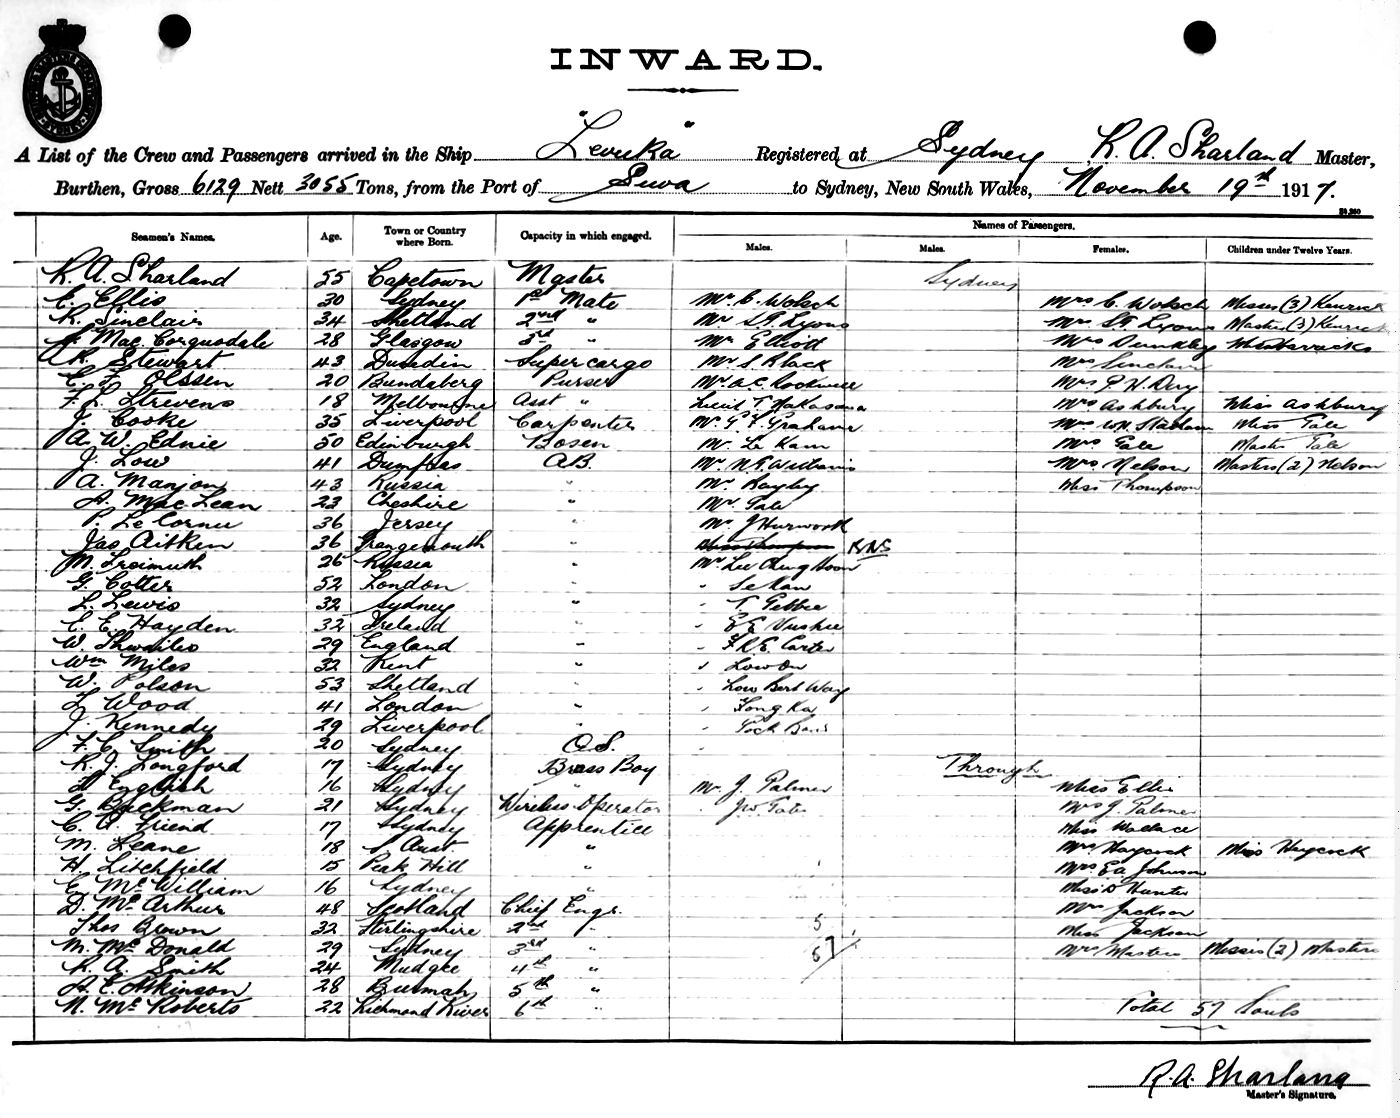 INWARD.
A List of the Crew and Passengers arrived in the Ship "Levuka" Registered at Sydney R. A. Sharland Master,
Burthen, Gross 6129 Nett 3055 Tons, from the Port of Suva to Sydney, New South Wales, November 19th 1917.
Seamen's Names. Age. Town or Country where Born. Capacity in which engaged. Names of Passengers.
Males. Males. Females. Children under Twelve Years.
R. A. Sharland 55 Capetown Master Sydney
C. Ellis 30 Sydney 1st Mate Mr C. Wolsch Mrs C. Wolsch Misses (3) Kenrick
R. Sinclair 34 Shetland 2nd " Mr S. F. Lyons Mrs S. F. Lyons Masters (3) Kenrick
Mac. Corquodale 28 Glasgow 3rd " Mr Elliott Mrs Dunkley
R. Stewart 43 Dunedin Supercargo Mr S. Black Mrs Sinclair
C. F. Olssen 20 Bundaberg Purser Mr A. C. Rockwell Mrs P. H. Day
F. L. Strevens 18 Melbourne Asst " Lieut T. Mrs Ashbury Miss Ashbury
J. Cooke 35 Liverpool Carpenter Mr G. F. Grahame Mrs Miss Tate
A. W. Ednie 50 Edinburgh Bosen Mr Le Kam Mrs Tate Master Tate
J. Low 41 Dumfries A.B. Mr Williams Mrs Nelson Masters (2) Nelson
A. Manjon 43 Russia " Mr Bayley Miss Thompson
A. Mac Lean 23 Cheshire " Mr Tate
P. Le Cornu 36 Jersey " Mr J Hurworth
Jas Aitken 36 Grangemouth " Miss Thompson RAS
M. Freimuth 26 Russia " Mr Lee Chung Hoon
G. Cotter 52 London " " Se Kan
L. Lewis 32 Sydney " " T Gebbie
C. E. Hayden 32 Ireland " "
W. Thwaites 29 England " " F. R. E. Carter
Wm Miles 32 Kent " " Low On
W. Polson 53 Shetland " " Low Bert Way
L Wood 41 London " " Fong Ka
J. Kennedy 29 Liverpool " "
F. C. Smith 20 Sydney O.S. "
R. J. Longford 17 Sydney Brass Boy Through
English 16 Sydney " Mr J. Palmer Miss Ellis
G. Backman 21 Sydney Wireless Operator " Mrs J. Palmer
C. A. Friend 17 Sydney Apprentice Miss Wallace
M. Leane 18 S. Aust " Mrs Haycock Miss Haycock
H. Litchfield 15 Peak Hill " Mrs E. A. Johnson
E. Mc William 16 Sydney " Miss D Hunter
D. Mc Arthur 48 Scotland Chief Engr. Mrs Jackson
Thos Brown 32 Stirlingshire 2nd " 5 Miss Jackson
M. Mc Donald 29 Sydney 3rd " 57 Mrs Masters Misses (2) Masters
R. A. Smith 24 Mudgee 4th "
A. E. Atkinson 28 Burmah 5th "
N. Mc Roberts 22 Richmond River 6th " Total 57 Souls
R. A. Sharland
Master's Signature.